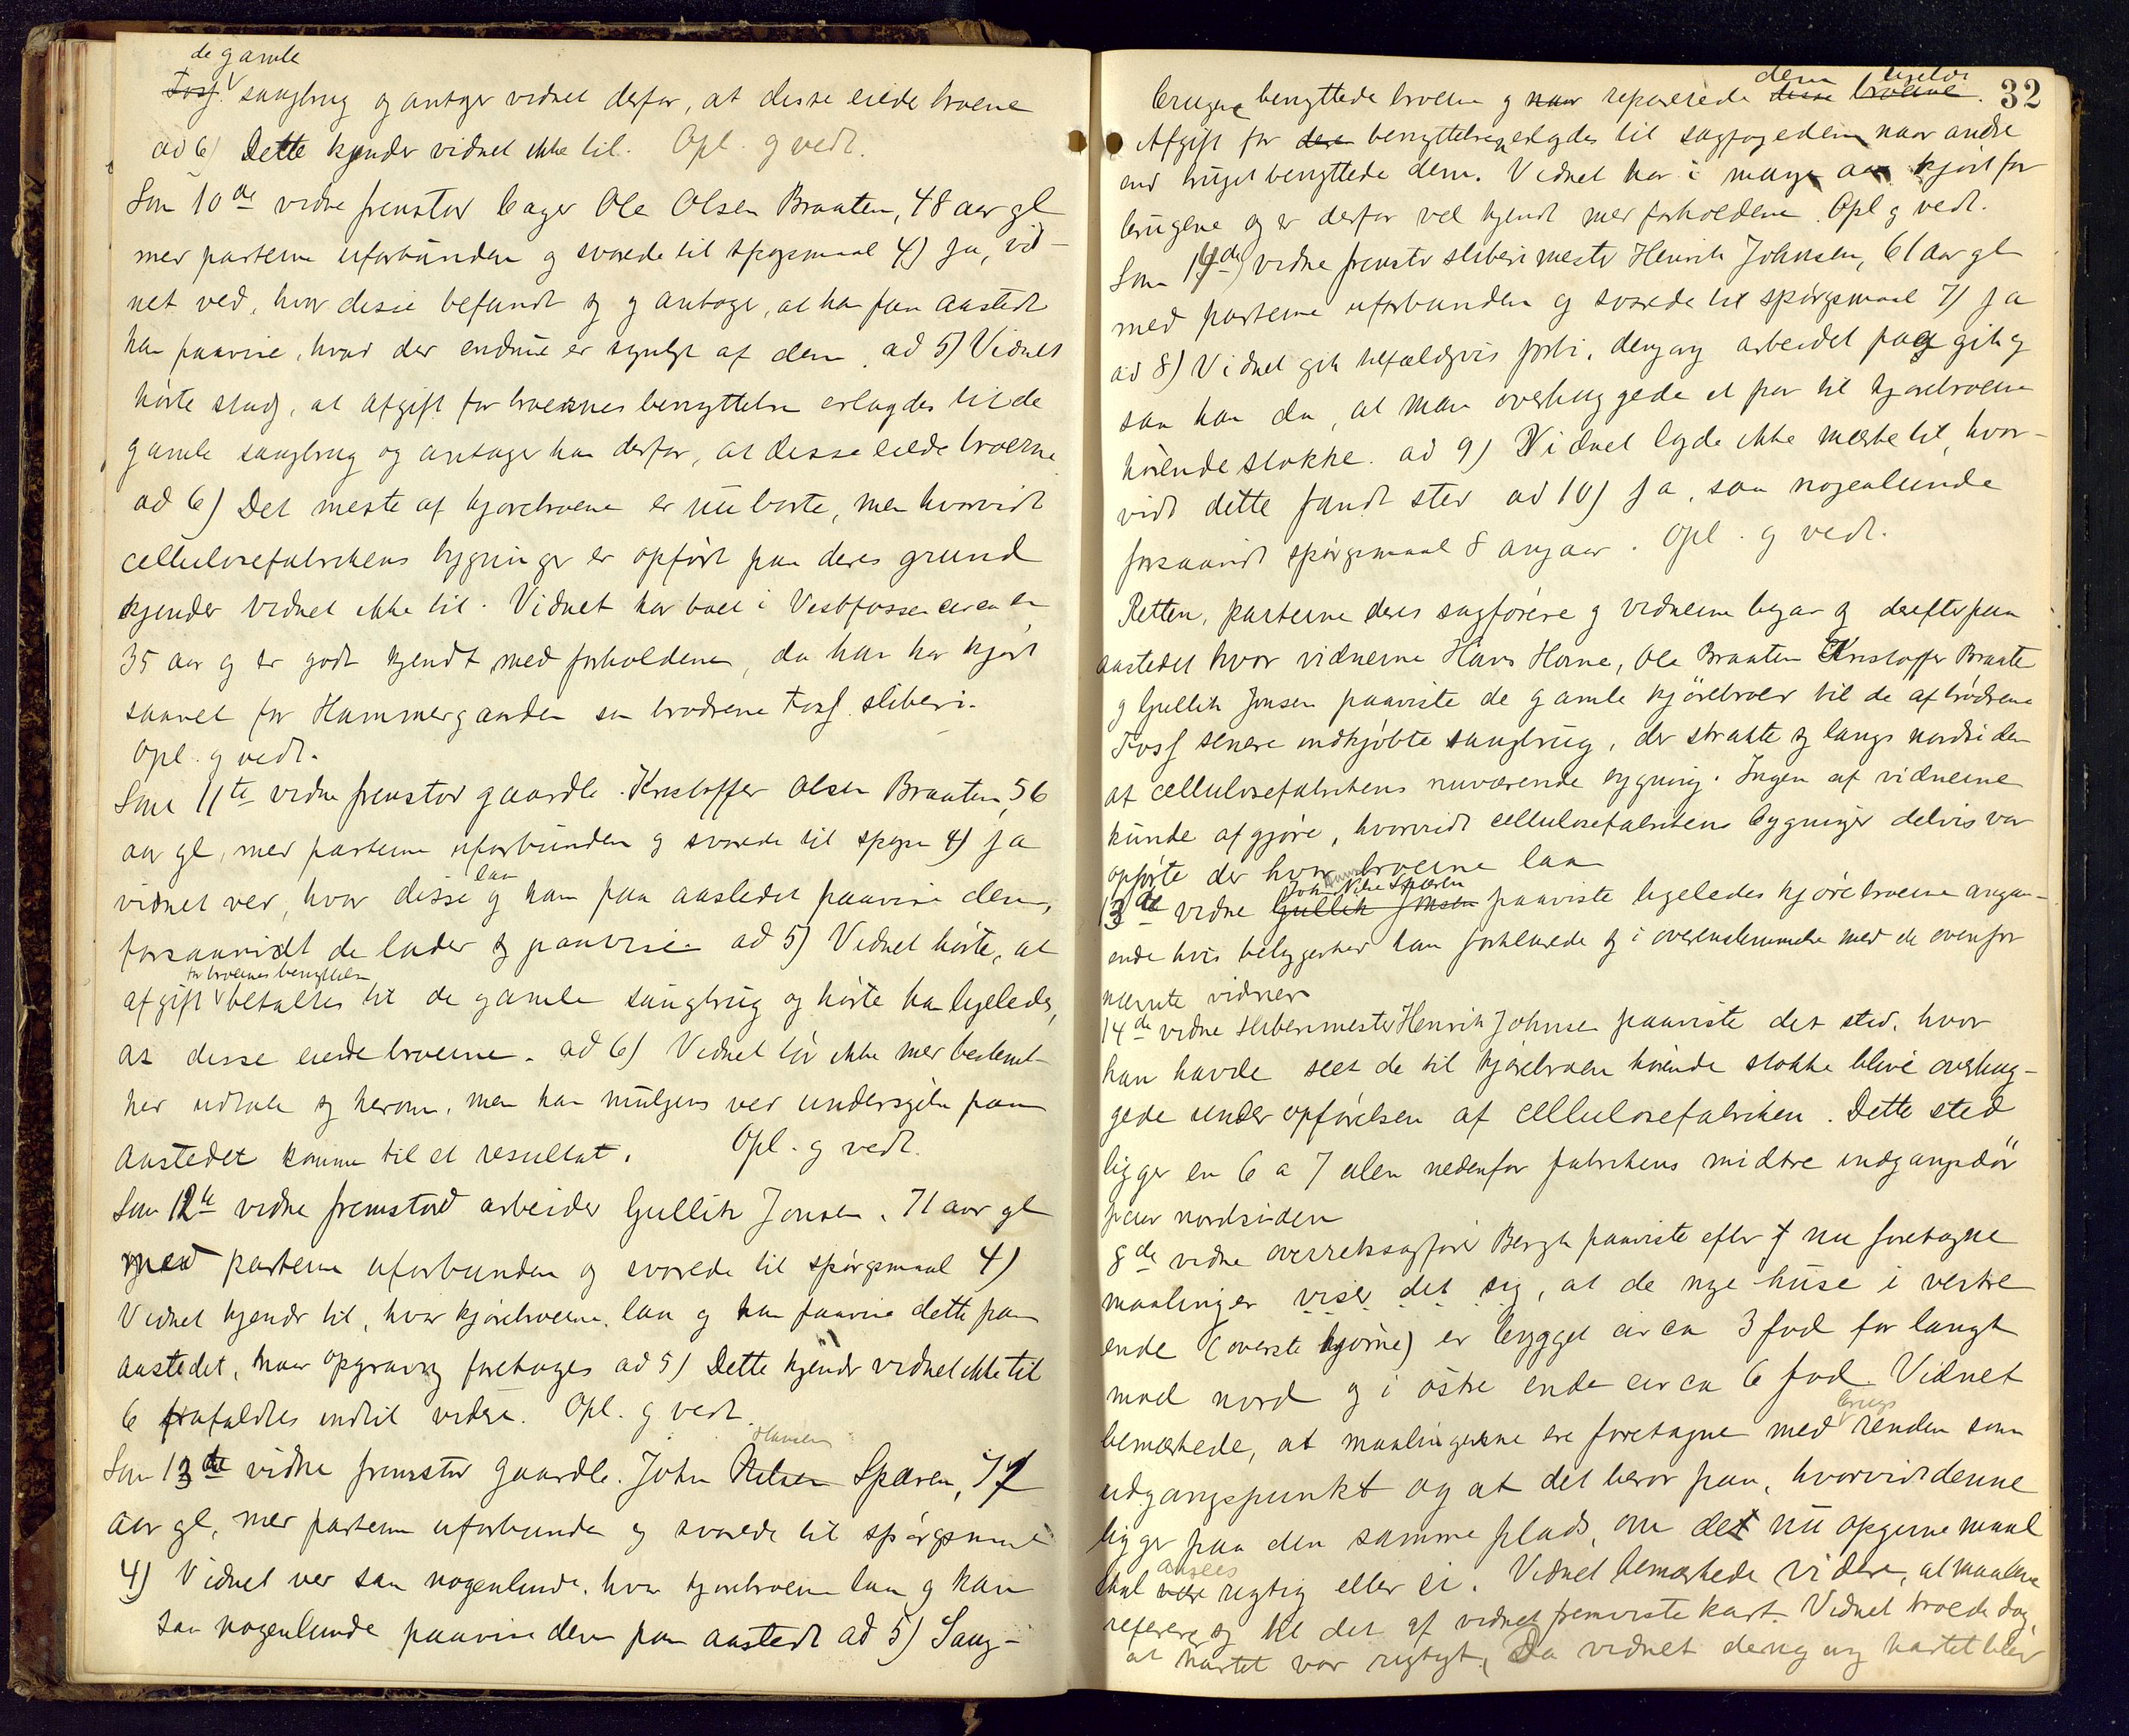 de gamle
Foss saugbrug og antager vidnet derfor, at disse eiede broene
ad 6) Dette kjender vidnet ikke til. Opl. og vedt.
Som 10de vidne fremstod bager Ole Olsen Braaten, 48 aar gl
med parterne uforbunden og svarede til spørgsmaal 4) Ja, vid-
net ved, hvor disse befandt sig og antager, at han paa aastedet
kan paavise, hvad der endnu er synligt af dem. ad 5) Vidnet
hørte stadig, at afgift for broernes benyttelse erlagdes til de
gamle saugbrug og antager han derfor, at disse eiede broerne
ad 6) Det meste af kjørebroene er nu borte, men hvorvidt
cellulosefabrikens bygninger er opført paa deres grund
kjender vidnet ikke til. Vidnet har boet i Vestfossen circa en
35 aar og er godt kjendt med forholdene, da han har kjørt
saavel for Hammergaarden som brødrene Foss sliberi.
Opl. og vedt.
Som 11te vidne fremstod gaardbr. Kristoffer Olsen Braaten, 56
aar gl, med parterne uforbunden og svarede til spgm 4) Ja
vidnet ved, hvor disse laa og kan paa aastedet paavise dem,
forsaavidt de lader sig paavise. ad 5) Vidnet hørte, at
for broernes benyttelse
afgift betaltes til de gamle saugbrug og hørte han ligeledes,
at disse eiede broerne. ad 6) Vidnet tør ikke med bestemt-
hed udtale sig herom, men kan muligens ved undersøgelse paa
aastedet komme til et resultat. Opl. og vedt.
Som 12te vidne fremstod arbeider Gullik Jonsen, 71 aar gl
med parterne uforbunden og svarede til spørgsmaal 4)
Vidnet kjender til, hvor kjørebroerne laa og kan paavise dette paa
aastedet, naar opgravning foretages ad 5) Dette kjender vidnet ikke til
6 frafaldtes indtil videre. Opl. og vedt.
Som 13de vidne fremstod gaardbr. John Nilsen Spæren, 57
aar gl, med parterne uforbunden og svarede til spørgsmaal
4) Vidnet ved saa nogenlunde, hvor kjørebroerne laa og kan
saa nogenlunde paavise dem paa aastedet ad 5) Saug-
32
brugene benyttede broerne og reparerede dem
Afgift for benyttelsen erlagdes til sagfogeden naar andre
end bruget benyttede dem. Vidnet har i mange aar kjørt for
brugene og er derfor vel kjendt med forholdene. Opl og vedt.
Som 14de vidne fremstod slibermester Henrik Johnsen, 61 aar gl
med parterne uforbunden og svarede til spørgsmaal 7) Ja
ad 8) Vidnet gik tilfældigvis forbi, dengang arbeidet paagik og
saa han da, at man overhuggede et par til kjørebroerne
hørende stokke. ad 9) Vidnet lagde ikke mærke til, hvor-
vidt dette fandt sted ad 10) Ja, saa nogenlunde
forsaavidt spørgsmaal 8 angaar. Opl. og vedt.
Retten, parterne deres sagførere og vidnerne begav sig derefter paa
aastedet hvor vidnerne Hans Horne, Ole Braaten Kristoffer Braaten
og Gullik Jonsen paaviste de gamle kjørebroer til de af brødrene
Foss senere indkjøbte saugbrug, der strakte sig langs nordsiden
af cellulosefabrikens nuværende bygning. Ingen af vidnerne
kunde afgjøre, hvorvidt cellulosefabrikens bygninger delvis var
opførte der hvor broerne laa
John Nilsen Spæren
13de vidne Gullik Jonsen paaviste ligeledes kjørebroerne angaa-
ende hvis beliggenhed han forklarede sig i overensstemmelse med de ovenfor
nævnte vidner
14de vidne slibermester Henrik Johnsen paaviste det sted, hvor
han havde seet de til kjørebroen hørende stokke blive overhug-
gede under opførelsen af cellulosefabriken. Dette sted
ligger en 6 a 7 alen nedenfor fabrikens midtre indgangsdør
paa nordsiden
8de vidne overretssagfører Bergh paaviste efter nu foretagne
maalinger viser det sig, at de nye huse i vestre
ende (øverste hjørne) er bygget circa 3 fod for langt
mod nord og i østre ende circa 6 fod. Vidnet
bemærkede, at maalingerne ere foretagne med brugsrenden som
udgangspunkt og at det beror paa, hvorvidt denne
ligger paa den samme plads, om det nu opgivne maal
skal ansees rigtig eller ei. Vidnet bemærkede videre, at maalene
referere sig til det af vidnet fremviste kart. Vidnet troede dog,
at kartet var rigtigt, Da vidnet dengang kartet blev